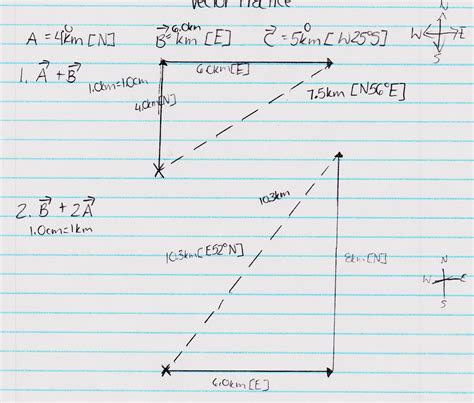 Vector Practice
N
A = 4.0km [N] B = 6.0km [E] C = 5.0km [W25°S]
W E
S
1. A + B
1.0km=1.0cm
6.0km[E]
4.0km[N]
7.5km [N56°E]
2. B + 2A
1.0cm=1km
10.3km
10.3km[E52°N]
8km [N]
N
W E
S
6.0km [E]